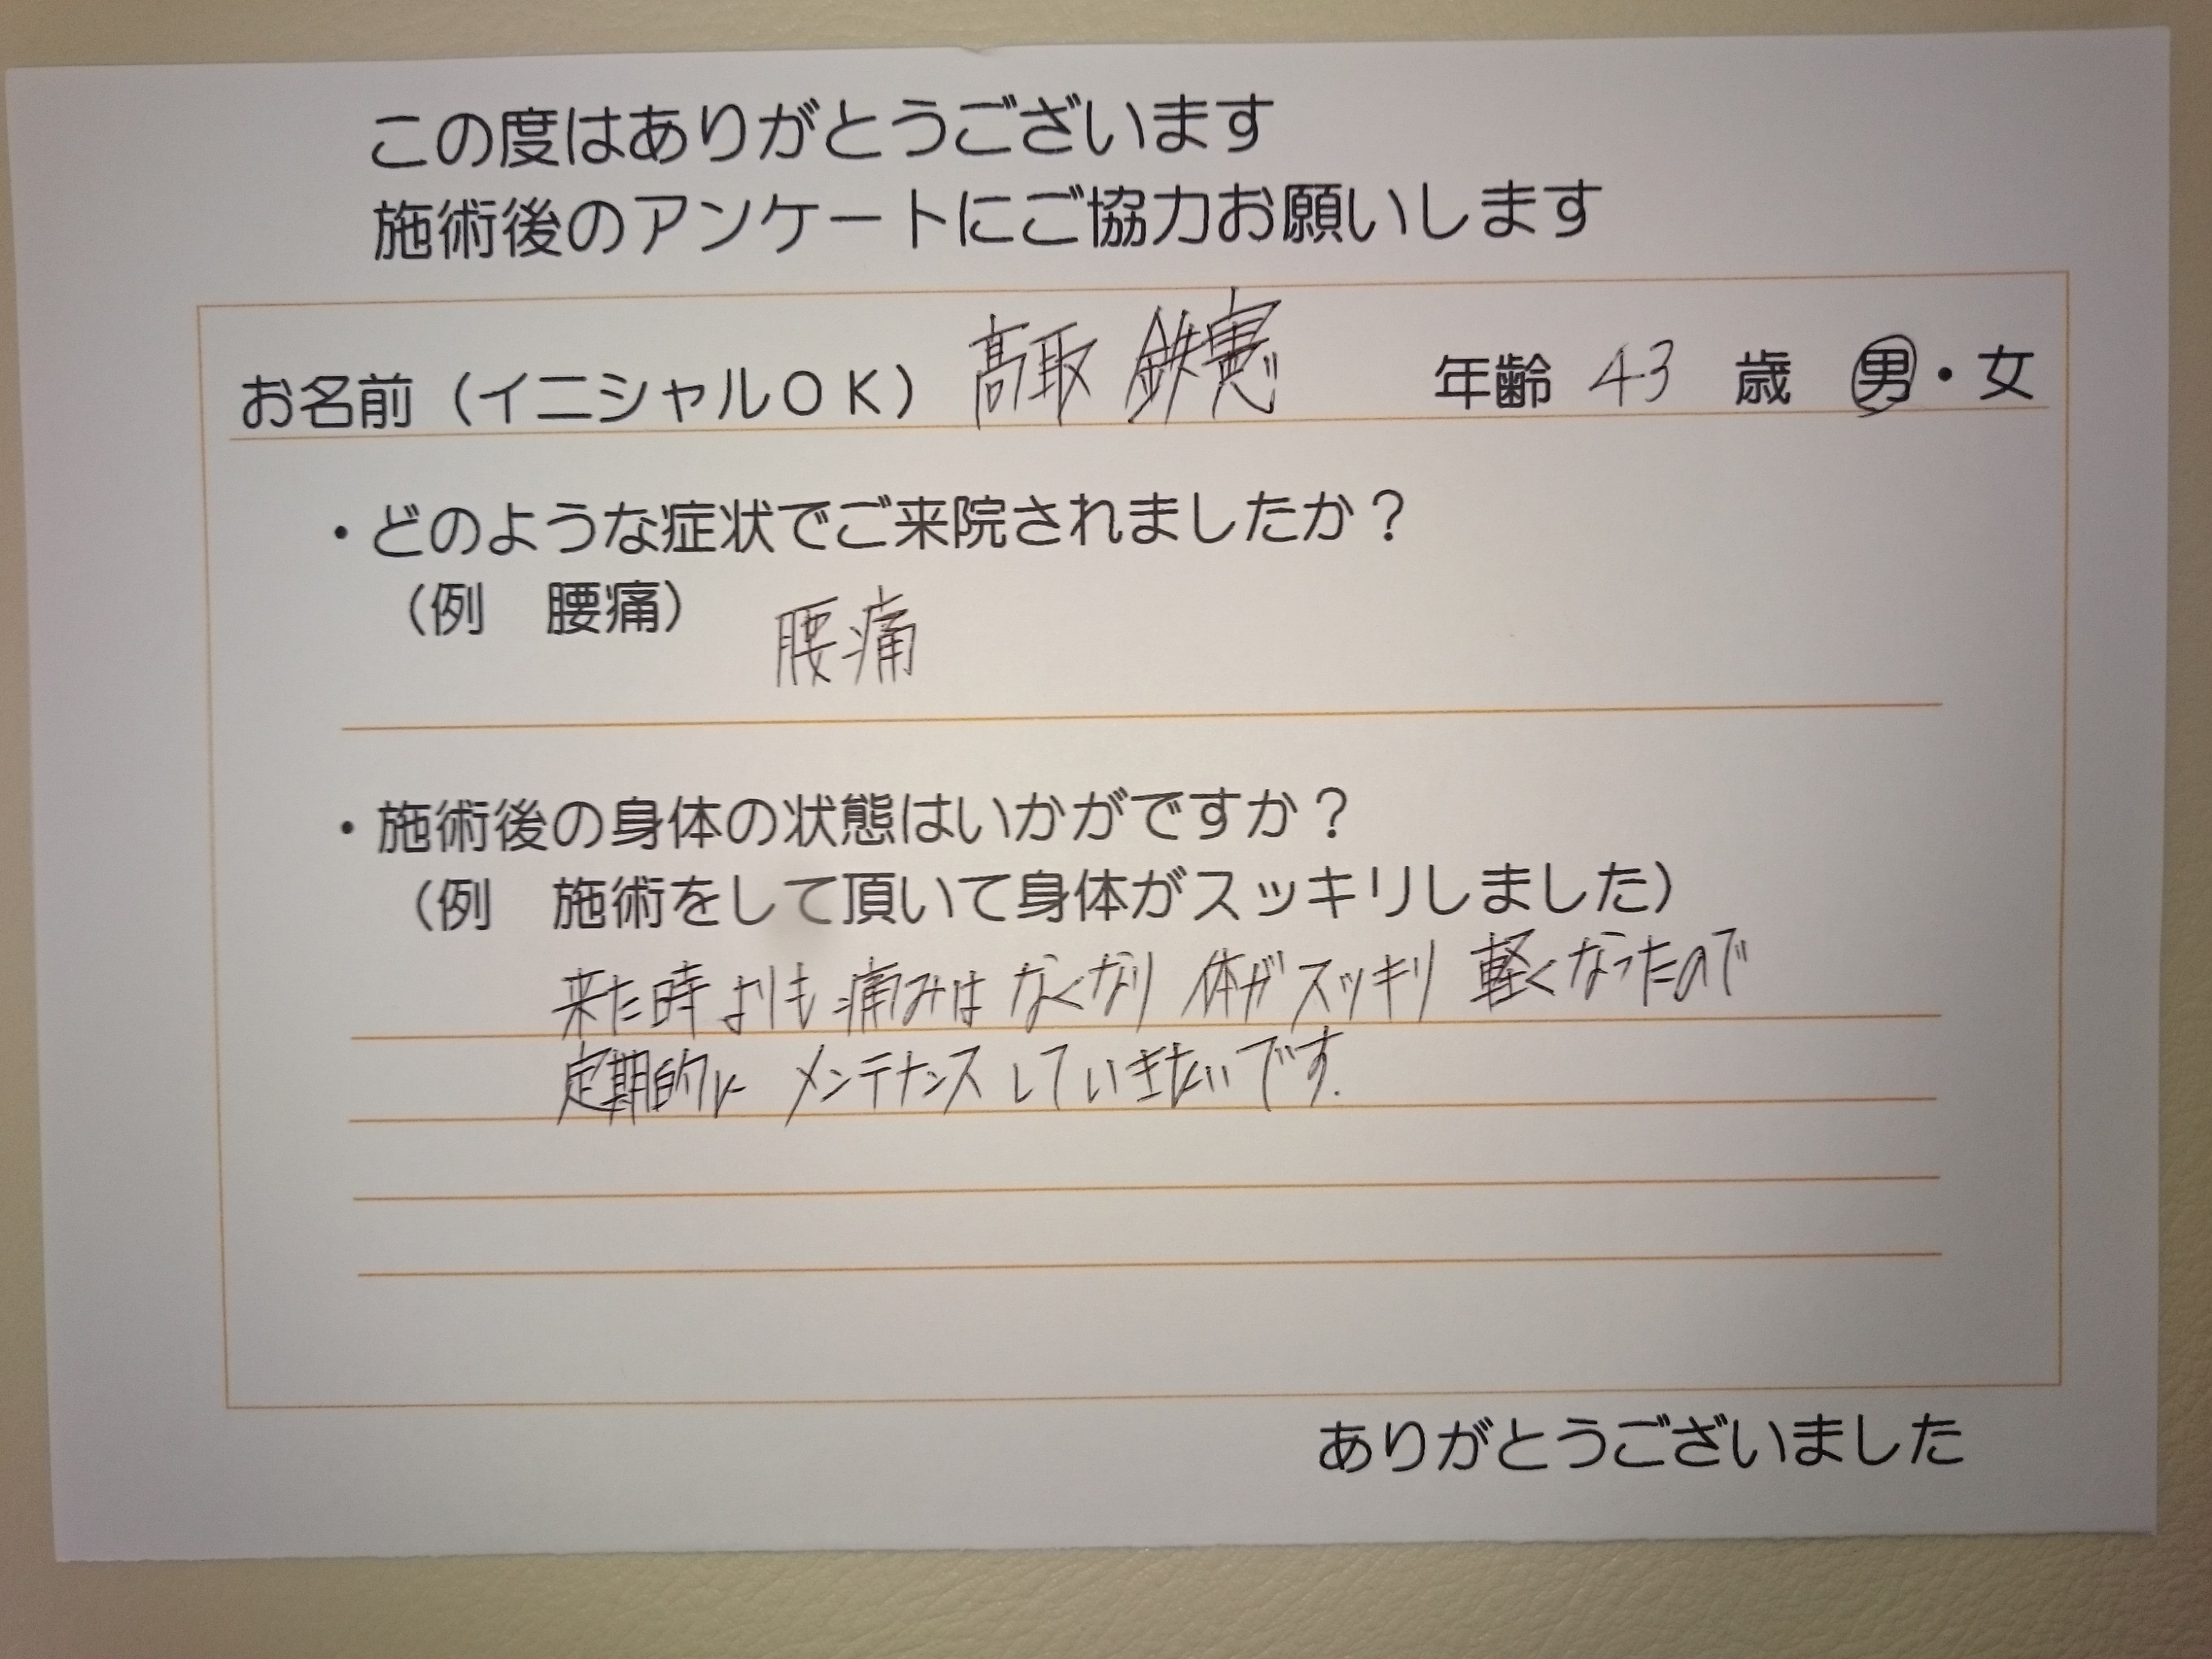 この度はありがとうございます
施術後のアンケートにご協力お願いします
お名前（イニシャルＯＫ） 髙取 鉄 年齢 43 歳 男・女
・どのような症状でご来院されましたか？
（例　腰痛） 腰痛
・施術後の身体の状態はいかがですか？
（例　施術をして頂いて身体がスッキリしました）
来た時よりも痛みはなくなり 体がスッキリ 軽くなったので
定期的に メンテナンスしていきたいです.
ありがとうございました